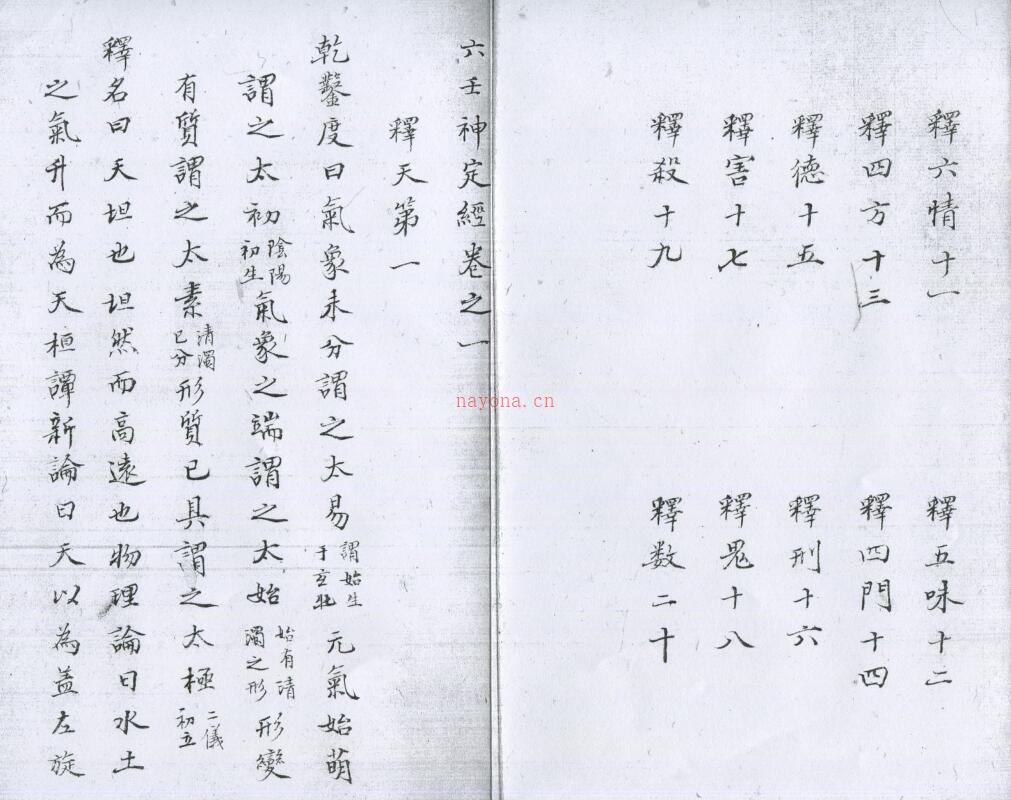 釋六情十一 釋五味十二
釋四方十三 釋四門十四
釋德十五 釋刑十六
釋害十七 釋鬼十八
釋殺十九 釋数二十
六壬神定經卷之一
釋天第一
乾鑿度曰氣象未分謂之太易謂始生于玄牝元氣始萌
謂之太初陰陽初生氣象之端謂之太始始有清濁之形形變
有質謂之太素清濁已分形質已具謂之太極二儀初立
釋名曰天坦也坦然而高遠也物理論曰水土
之氣升而為天桓譚新論曰天以為盖左旋
nayona.cn